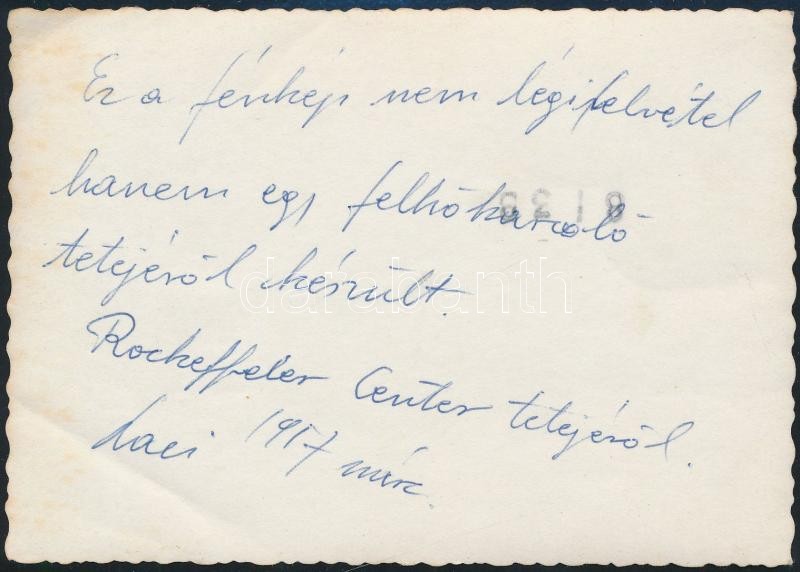 Ez a fénkép nem légifelvétel
hanem egy felhőkarcoló
tetejéről készült.
Rockeffeler Center tetejéről.
Laci 1957 márc.
darabanth